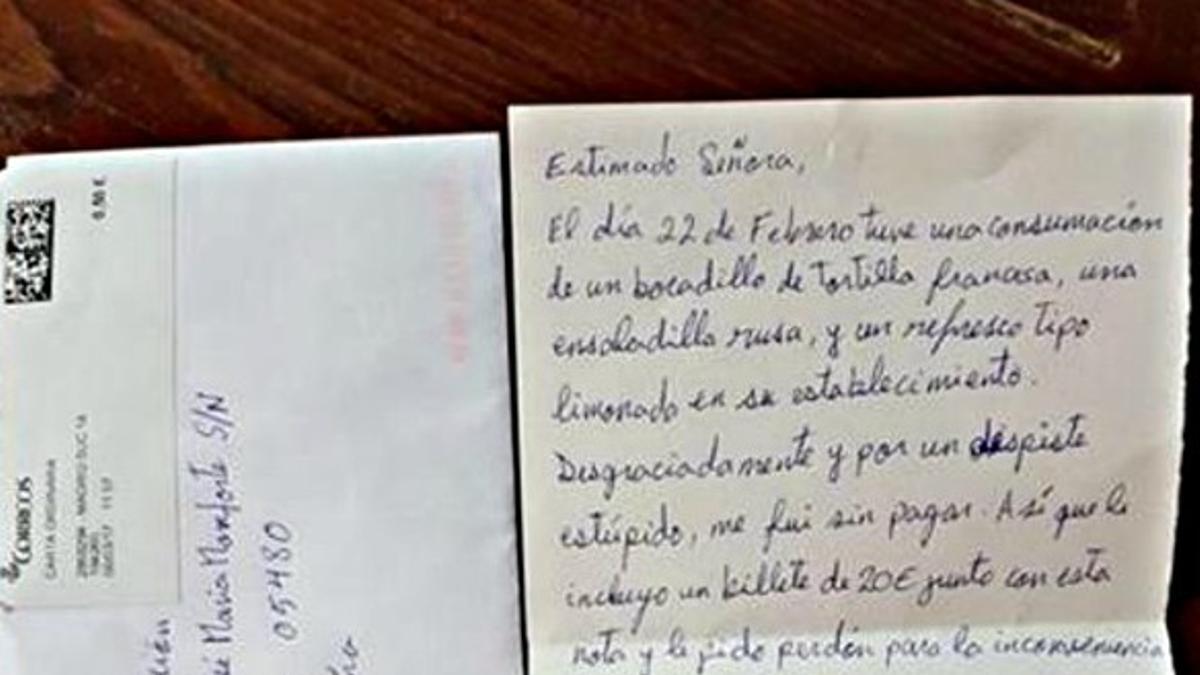 Estimado Señora,
El día 22 de Febrero tuve una consumación
de un bocadillo de Tortilla francesa, una
ensaladilla rusa, y un refresco tipo
limonado en su establecimiento.
Desgraciadamente y por un despiste
estúpido, me fui sin pagar. Así que le
incluyo un billete de 20€ junto con esta
nota y le pido perdón para la inconveniencia
CORREOS
CARTA ORDINARIA
MADRID SUC 14
María Monforte S/N
05480